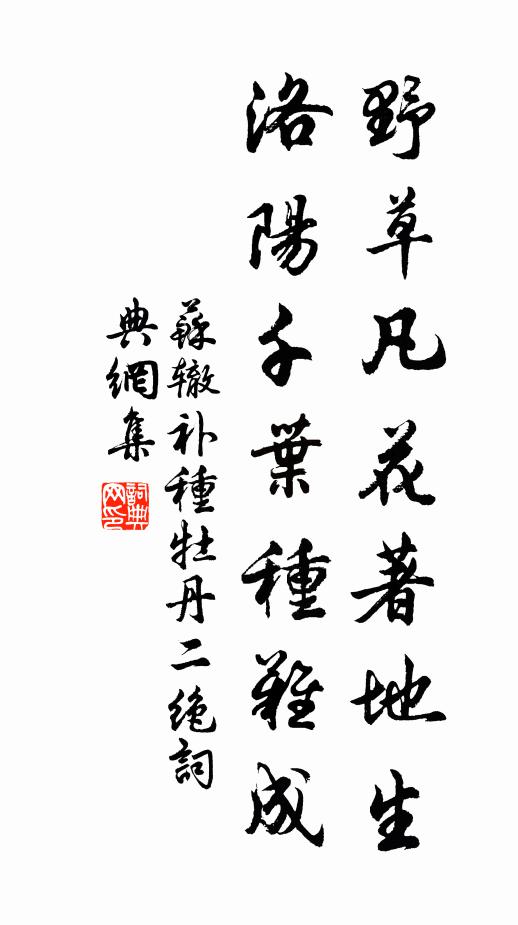 野草凡花著地生
洛陽千葉種難成
蘇辙补種牡丹二绝詞
典網集
詞典
网印